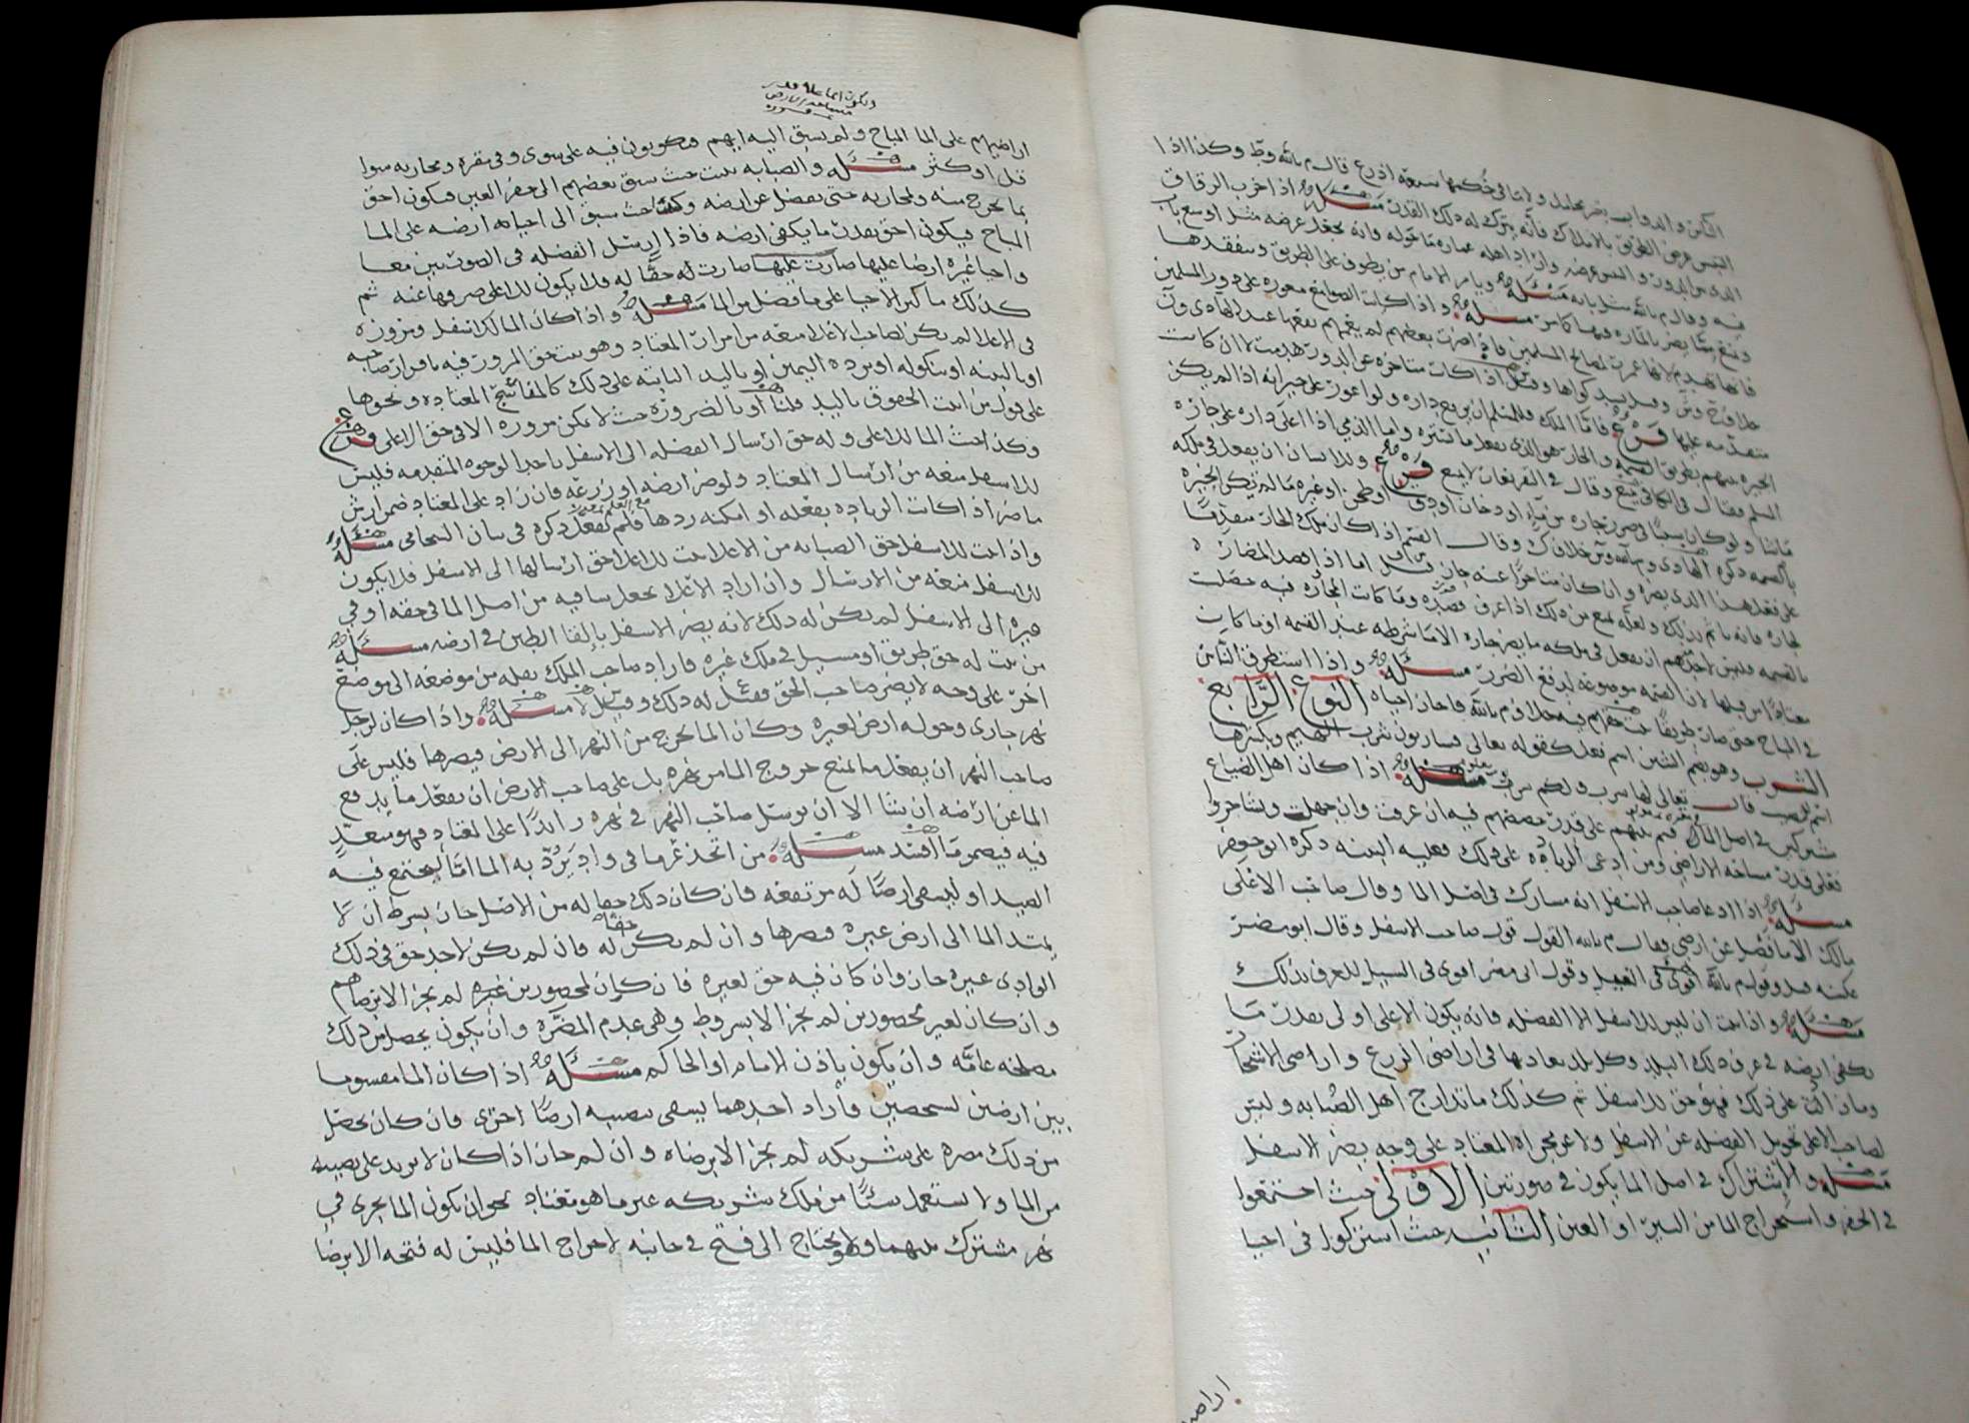 الناس والدواب بغير محامل ولا ما في حكمها سبعة اذرع قال م بالله وط وكذا اذا
التبس عرض الطريق بالاملاك فانه يترك له ذلك القدر مسئله اذا خرب الزقاق
الذي بين الدور والتبس عرضه واراد اهله عماره ما حوله فانه يجعل عرضه مثل اوسع باب
فيه وقال م بالله مثل بابه مسئله ويامر الامام من يطوف على الطريق ويتفقدها
ويمنع مما يضر بالماره فيها مسئله واذا كانت الصوامع معوره على دور المسلمين
فانها تهدم لانها عمرت لمصالح المسلمين فاذا اضرت بعضهم لم يعمهم نفعها عند الهادي ون
خلاف ح وش وقيل اذا كانت متاخره عن الدور هدمت لا ان كانت
متقدمه عليها فرع فاما الملك فللمسلم ان يرفع داره ولو اعور على جيرانه اذا لم يكن
الجيره بينهم بطريق القسمه والجار هو الذي يفعل ما يستره واما الذمي اذا اعلى داره على جاره
المسلم فقال في الكافي يمنع وقال في التفريعات لا يمنع فرع وللانسان ان يفعل في ملكه
ما شا ولو كان سببا في ضرر جاره من ماء او دخان او دق او طحن او غيره ما لم تكن الجيره
بالقسمه ذكره الهادي وم بالله وش خلاف ك وقال القسم اذا كان ملك الجار متقدما
على فعل هذا الذي يضره وان كان متاخرا عنه جاز قيل اما اذا قصد المضاره
لجاره فانه ياثم بذلك ولعله يمنع من ذلك اذا عرف قصده وما كانت المجاره فيه حصلت
بالقسمه فليس لاحدهم ان يفعل في ملكه ما يضر جاره الا ما شرطه عند القسمه او ما كان
معتادا من قبلها لان القسمه موضوعه لدفع الضرر مسئله واذا استطرق الناس
في المباح حتى صار طريقا خلاف م بالله فاحازا احياه النوع الرابع
الشرب وهو بضم الشين اسم فعل كقوله تعالى فشاربون شرب الهيم وبكسرها
اسم للنصيب قال تعالى لها شرب ولكم شرب مسئله اذا كان اهل الضياع
شركين في اصل الما قسم بينهم على قدر حصصهم فيه ان عرفت وان جهلت وتشاجروا
فعلى قدر مساحه الاراضي ومن ادعى الزياده على ذلك فعليه البينه ذكره ابو جعفر
مسئله اذا ادعا صاحب الاسفل انه مشارك في اصل الما وقال صاحب الاعلى
مالك الا ما فضل عن ارضي فقال م بالله القول قول صاحب الاسفل وقال ابو مضر
عكسه وقول م بالله اقوى في الغيل وقول ابي مضر اقوى في السيل للعرف بذلك
مسئله واذا ثبت ان ليس للاسفل الا الفضله فانه يكون الاعلى اولى بقدر ما
يكفي ارضه في عرف ذلك البلد وكل بلد بعادتها في اراضي الزرع واراضي الاشجار
وما زاد على ذلك فهو حق للاسفل ثم كذلك ما تدارج اهل الصبابه وليس
لصاحب الاعلى تحويل الفضله عن الاسفل ولا عن مجراه المعتاد على وجه يضر الاسفل
مسئله والاشتراك في اصل الما يكون في صورتين الاولى حيث اجتمعوا
في الحفر واستخراج الما من البير او العين الثانيه حيث اشتركوا في احيا
اراضيهم
ويكون الما على قدر
مساحه الارض
اراضيهم على الما المباح ولم يسبق اليه ايهم ويكونون فيه على سوى وفي مقره ومجاريه سوا
قل او كثر مسئله والصبابه تثبت حيث سبق بعضهم الى حفر العين فيكون احق
بما يخرج منه ومجاريه حتى يفضل عن ارضه وكذا حيث سبق الى احياء ارضه على الما
المباح فيكون احق بقدر ما يكفي ارضه فاذا ارسل الفضله في الصورتين معا
واحيا غيره ارضا عليها صارت عليها صارت له حقا له فلا يكون للاعلى صرفها عنه ثم
كذلك ما كر الاحيا على ما فضل من الما مسئله واذا كان المالك اسفل ونزوزه
في الاعلا لم يكن لصاحب الاعلا منعه من امرار المعتاد وهو يستحق المرور فيه بالاقرار من صاحبه
او بالبينه او بنكوله او برده اليمين او باليد الثابته على ذلك كالمفاتيح المعتاده ونحوها
على قول من اثبت الحقوق باليد قلنا او بالضروره حيث لا يمكن مروره الا في حق الاعلى فرع
وكذا حيث الما للاعلى وله حق ارسال الفضله الى الاسفل باحد الوجوه المتقدمه فليس
للاسفل منعه من ارسال المعتاد ولو ضر ارضه او زرعه فان زاد على المعتاد ضمن ارش
ما ضر اذا كانت الزياده بفعله او امكنه ردها فلم يفعل مع العلم ذكره في بيان السحامي مسئله
واذا ثبت للاسفل حق الصبابه من الاعلا ثبت للاعلا حق ارسالها الى الاسفل فلا يكون
للاسفل منعه من الارسال وان اراد الاعلا يجعل ساقيه من اصل الما في حقه او في
غيره الى الاسفل لم يكن له ذلك لانه يضر الاسفل بالقا الطين في ارضه مسئله
من ثبت له حق طريق او مسيل في ملك غيره فاراد صاحب الملك نقله من موضعه الى موضع
اخر على وجه لا يضر صاحب الحق فقيل له ذلك وقيل لا مسئله واذا كان لرجل
نهر جاري وحوله ارض لغيره وكان الما يخرج من النهر الى الارض فيضرها فليس على
صاحب النهر ان يفعل ما يمنع خروج الما من نهره بل على صاحب الارض ان يفعل ما يدفع
الما عن ارضه ان شا الا ان يرسل صاحب النهر في نهره زايدا على المعتاد فهو متعد
فيه فيضمن ما افسد مسئله من اتخذ عرما في واد يرد به الما اما ليجتمع فيه
الصيد او ليسقي ارضا له مرتفعه فان كان ذلك حقا له من الاصل جاز بشرط ان لا
يمتد الما الى ارض غيره فيضرها وان لم يكن حقا له فان لم يكن لاحد حق في ذلك
الوادي غيره جاز وان كان فيه حق لغيره فان كان لمحصورين غيره لم يجز الا برضاهم
وان كان لغير محصورين لم يجز الا بشروط وهي عدم المضره وان يكون يحصل من ذلك
مصلحه عامه وان يكون باذن الامام او الحاكم مسئله اذا كان الما مقسوما
بين ارضين لشخصين واراد احدهما يسقي بنصيبه ارضا اخرى فان كان يحصل
من ذلك مضره على شريكه لم يجز الا برضاه وان لم جاز اذا كان لا يزيد على نصيبه
من الما ولا يستعمل شيئا من ملك شريكه غير ما هو معتاد نحو ان يكون الما يجري في
نهر مشترك بينهما وهو يحتاج الى فتح في جانبه لاخراج الما فليس له فتحه الا برضا